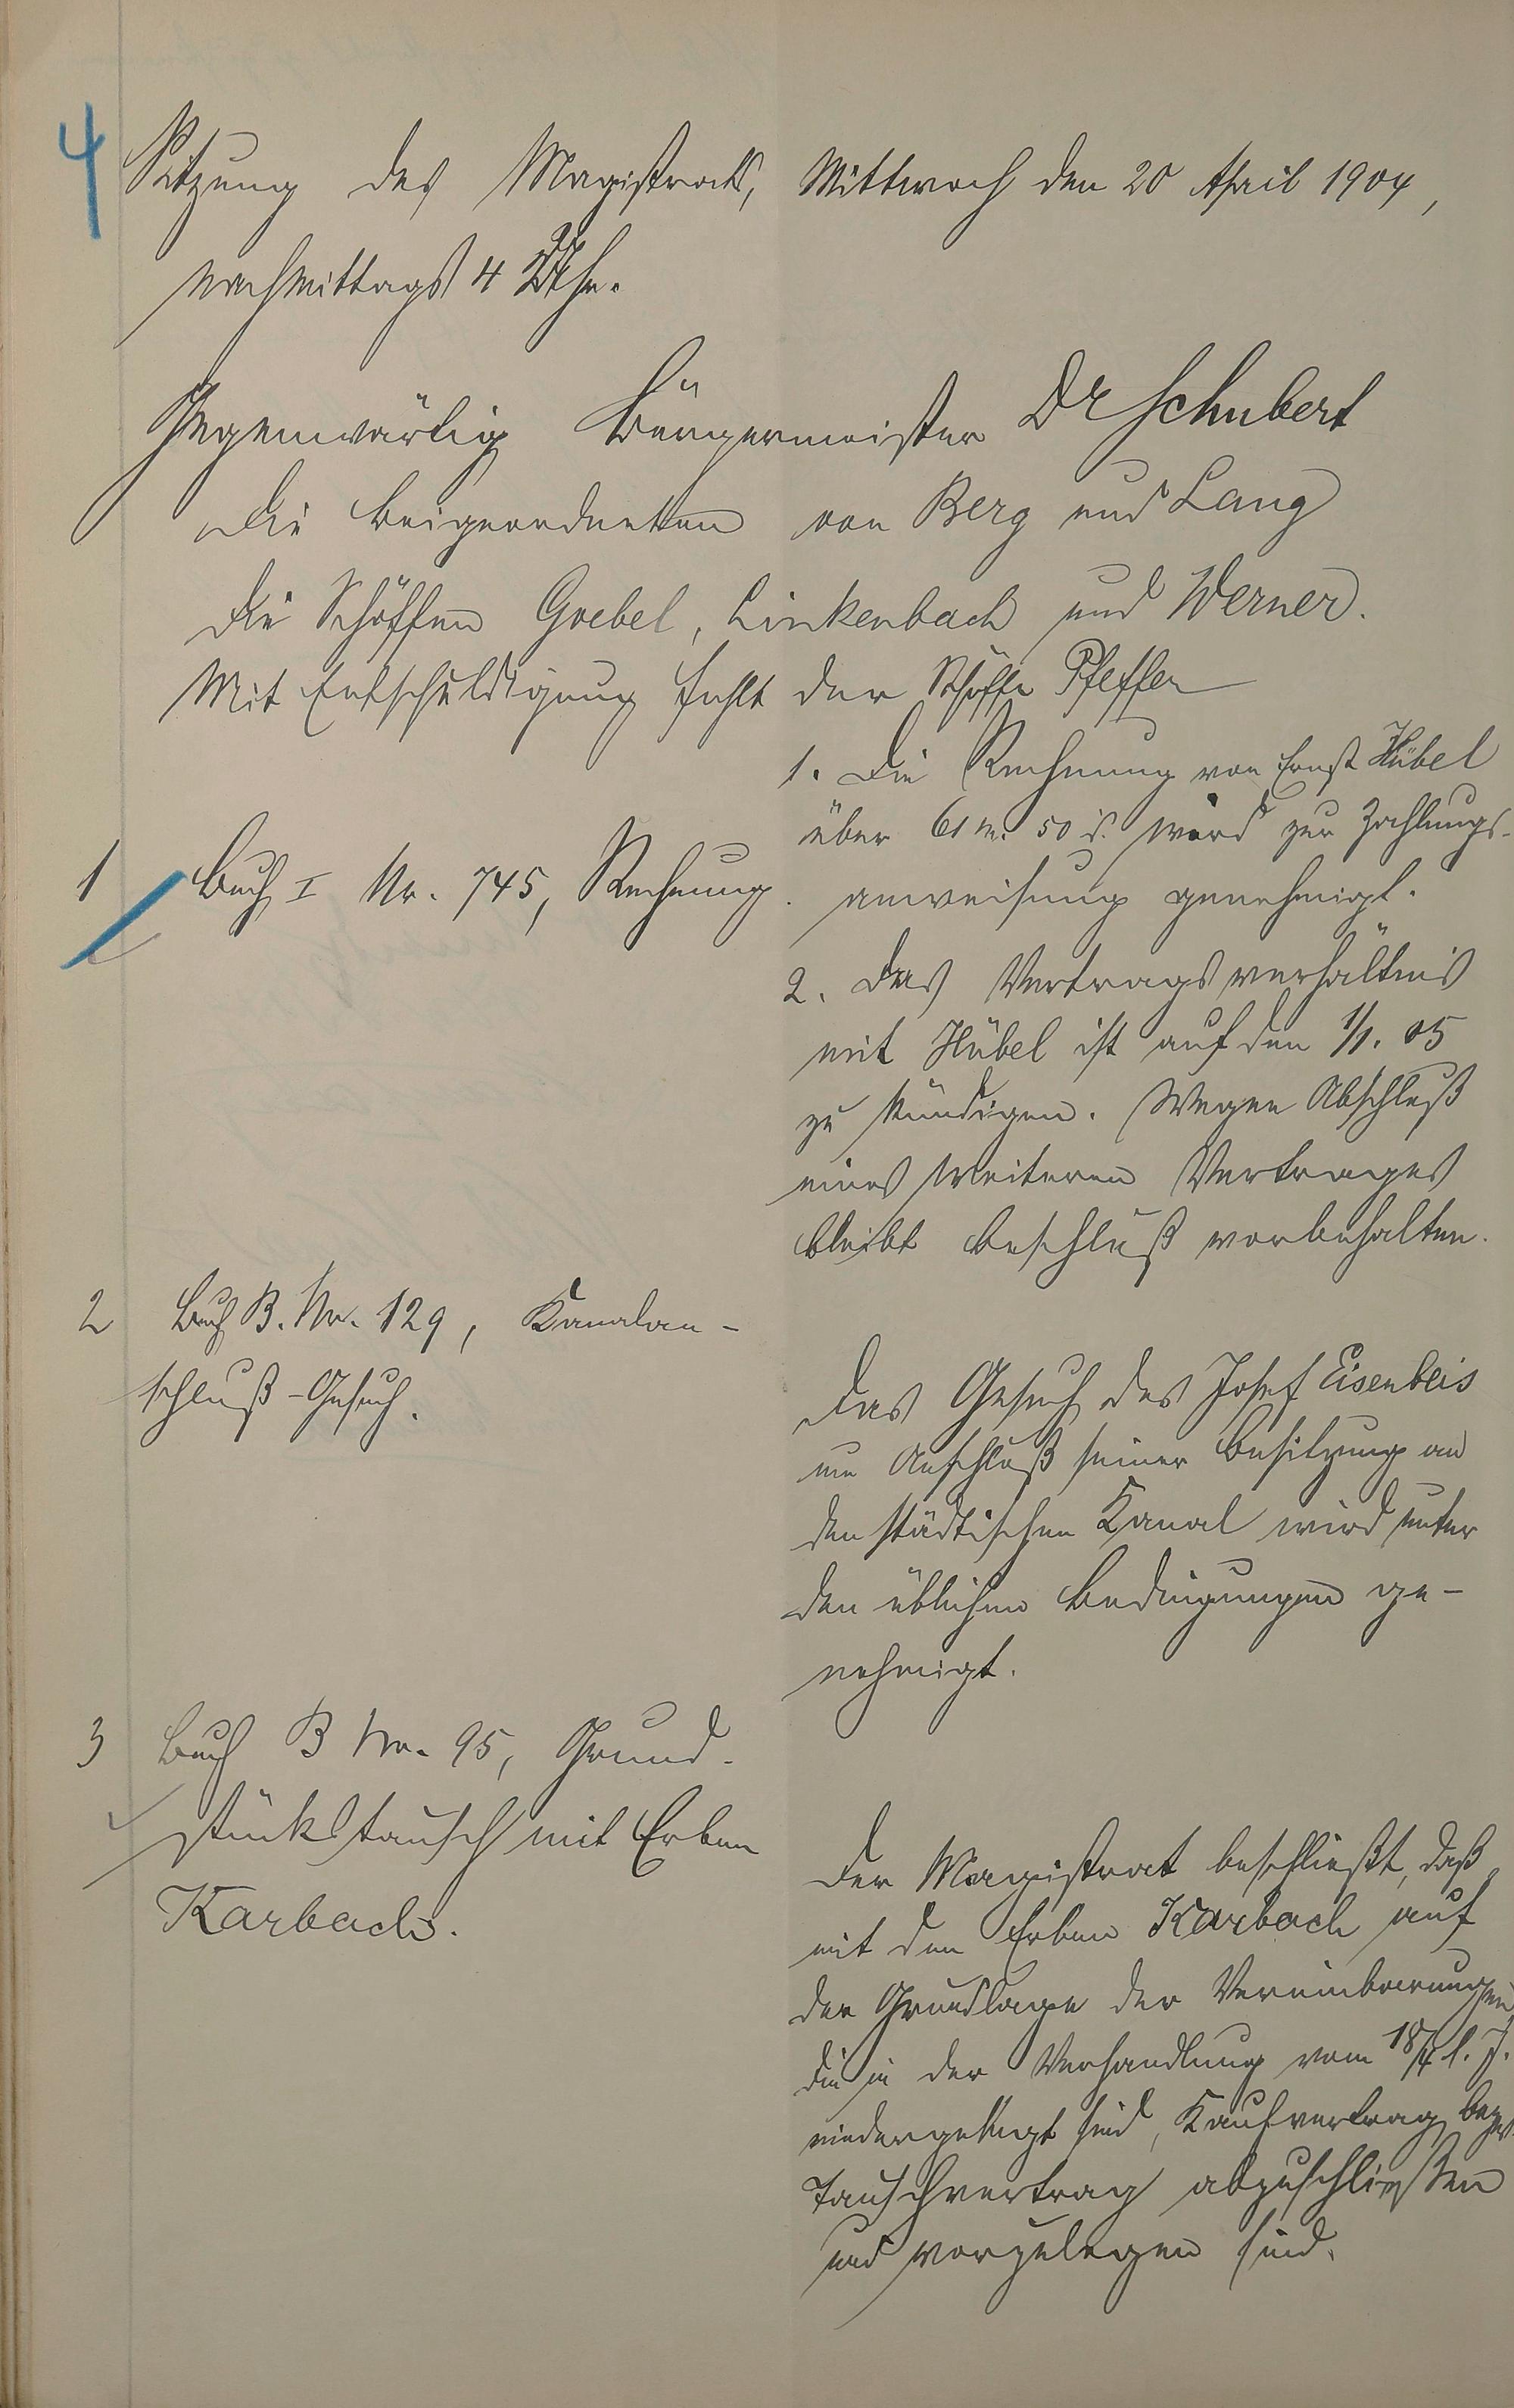 4
Sitzung des Magistrats, Mittwoch den 20 April 1904,
nachmittags 4 Uhr.
Gegenwärtig Bürgermeister Dr Schubert
die Beigeordneten von Berg und Lang
die Schöffen Goebel, Linkenbach und Werner.
Mit Entschuldigung fehlt der Schöffe Pfeffer
1
Buch I Nr. 745, Rechnung.
1. Die Rechnung von Ernst Hübel
über 61 M. 50 d. wird zur Zahlungs-
anweisung genehmigt.
2. Das Vertragsverhältnis
mit Hübel ist auf den 1/1. 05
zu kündigen. Wegen Abschluß
eines weiteren Vertrages
bleibt Beschluß vorbehalten.
2
Buch B. Nr. 129, Kanalan-
schluß-Gesuch.
Das Gesuch des Josef Eisenbeis
um Anschluß seiner Besitzung an
den städtischen Kanal wird unter
den üblichen Bedingungen ge-
nehmigt.
3
Buch B Nr. 95, Grund-
stückstausch mit Erben
Karbach.
Der Magistrat beschließt, daß
mit den Erben Karbach auf
der Grundlage der Vereinbarungen,
die in der Verhandlung vom 18/4 l. J.
niedergelegt sind, Kaufvertrag bezw.
Tauschvertrag abzuschließen
und vorzulegen sind.